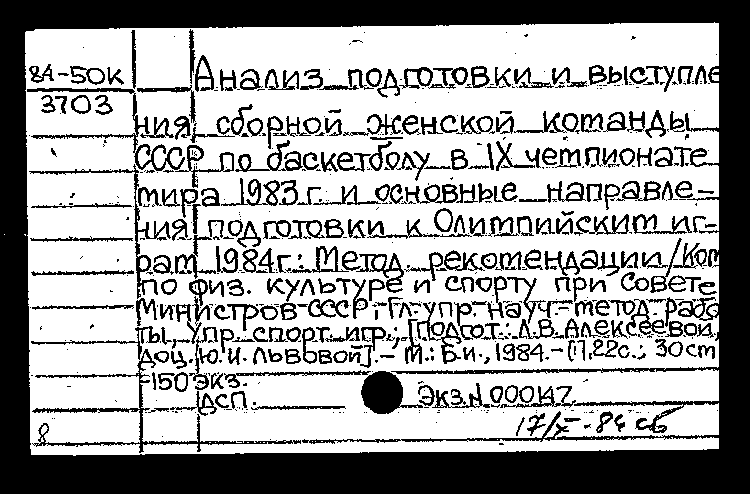 84-50К
3703
Анализ подготовки и выступле
ния сборной женской команды
СССР по баскетболу в IX чемпионате
мира 1983 г. и основные направле-
ния подготовки к Олимпийским иг-
рам 1984г.: Метод. рекомендации/Ком
по физ. культуре и спорту при Совете
Министров СССР, Гл. упр. науч.-метод. рабо
ты, Упр. спорт. игр.; [Подгот.: Л.В. Алексеевой,
доц. Ю.И. Львовой]. - М.: Б.и., 1984. - [1], 22с.; 30 cm
-150 экз.
ДСП.
Экз.N 000147
17/X-84 сб
8